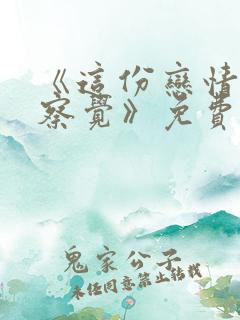 《這份戀情
察覺》免費
鬼家公子
未经同意禁止转载